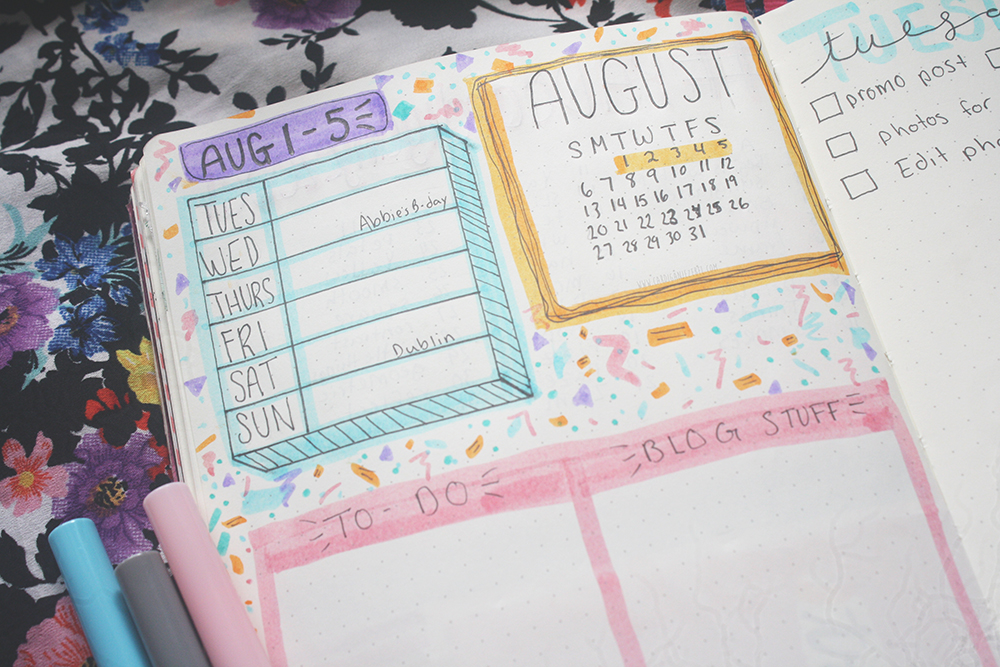 AUG 1-5
TUES
WED Abbie's B-day
THURS
FRI
SAT Dublin
SUN
AUGUST
S M T W T F S
1 2 3 4 5
6 7 8 9 10 11 12
13 14 15 16 17 18 19
20 21 22 23 24 25 26
27 28 29 30 31
TO-DO
BLOG STUFF
promo post
photos for
Edit